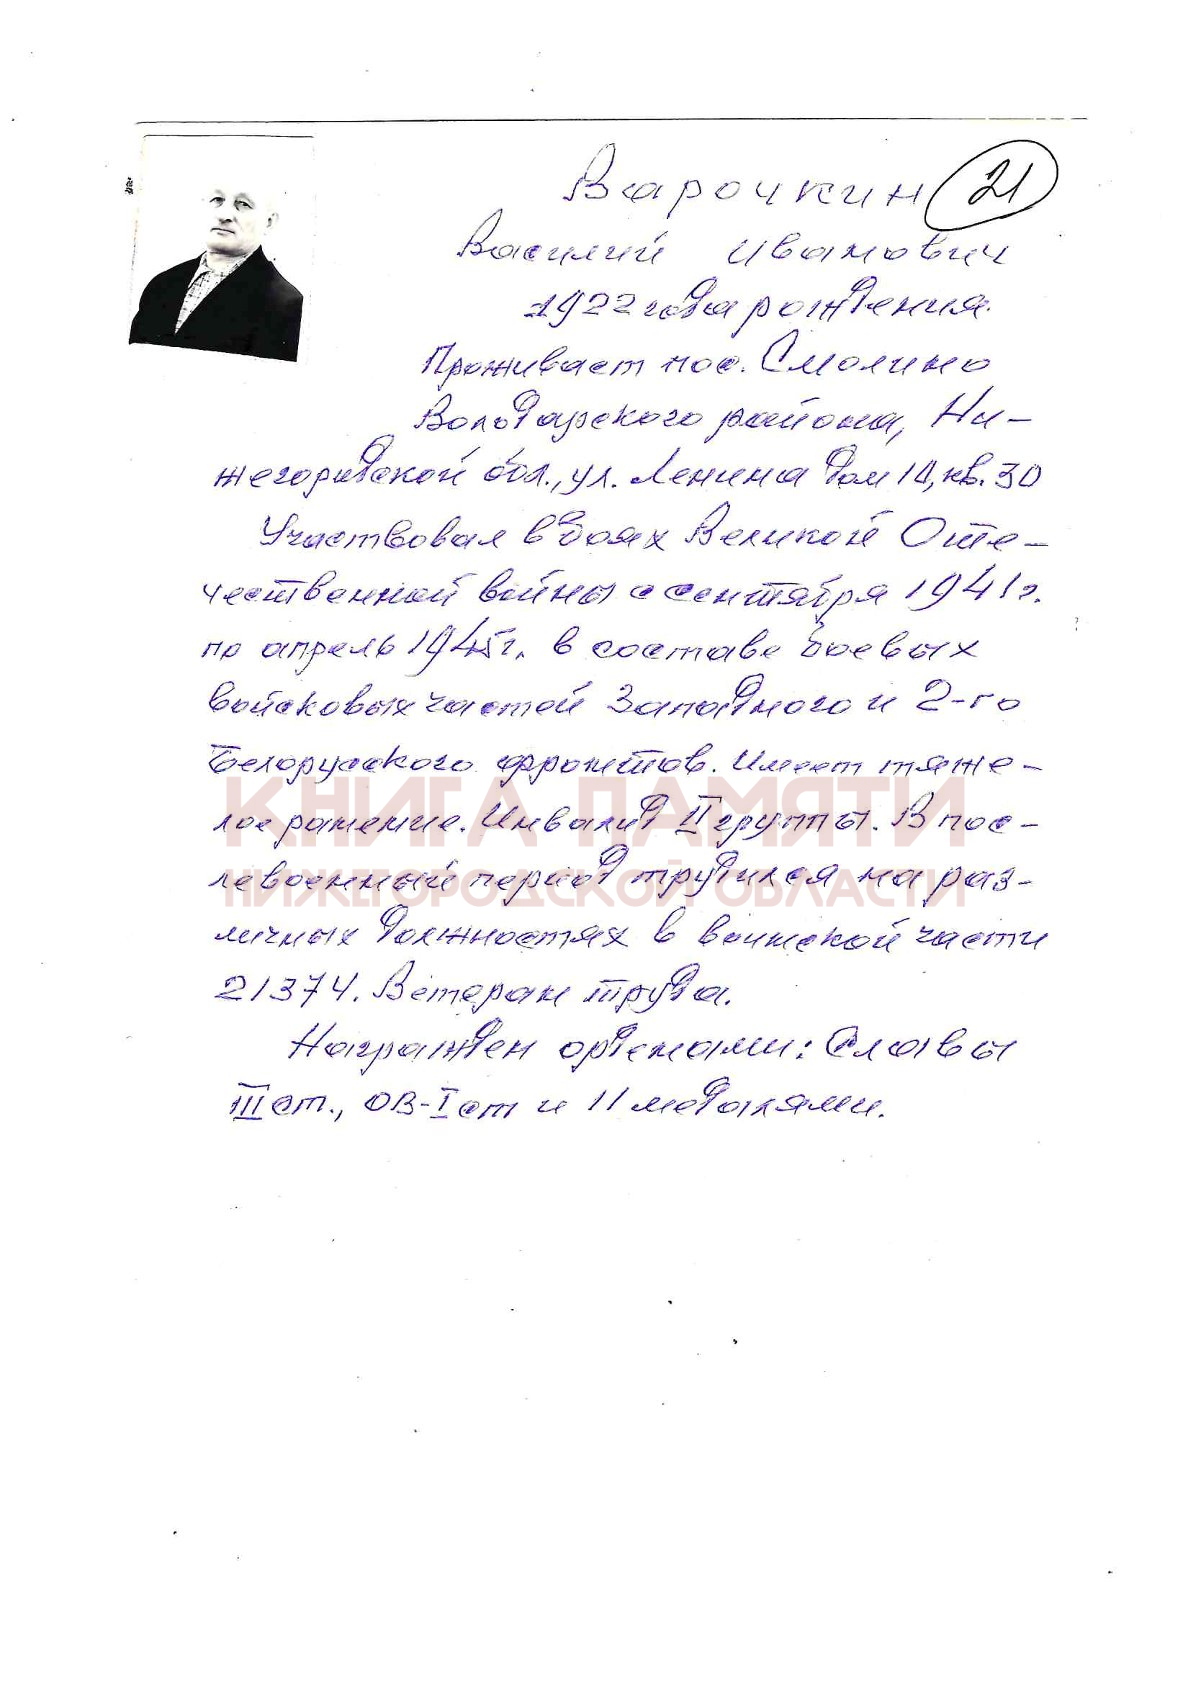 Варочкин 21
Василий Иванович
1922 года рождения.
Проживает пос. Смолино
Володарского района, Ни-
жегородской обл., ул. Ленина дом 10, кв. 30
Участвовал в боях Великой Оте-
чественной войны с сентября 1941 г.
по апрель 1945 г. в составе боевых
войсковых частей Западного и 2-го
Белорусского фронтов. Имеет тяже-
лое ранение. Инвалид II группы. В пос-
левоенный период трудился на раз-
личных должностях в воинской части
21374. Ветеран труда.
Награжден орденами: Славы
III ст., ОВ-I ст и 11 медалями.
КНИГА ПАМЯТИ
НИЖЕГОРОДСКОЙ ОБЛАСТИ